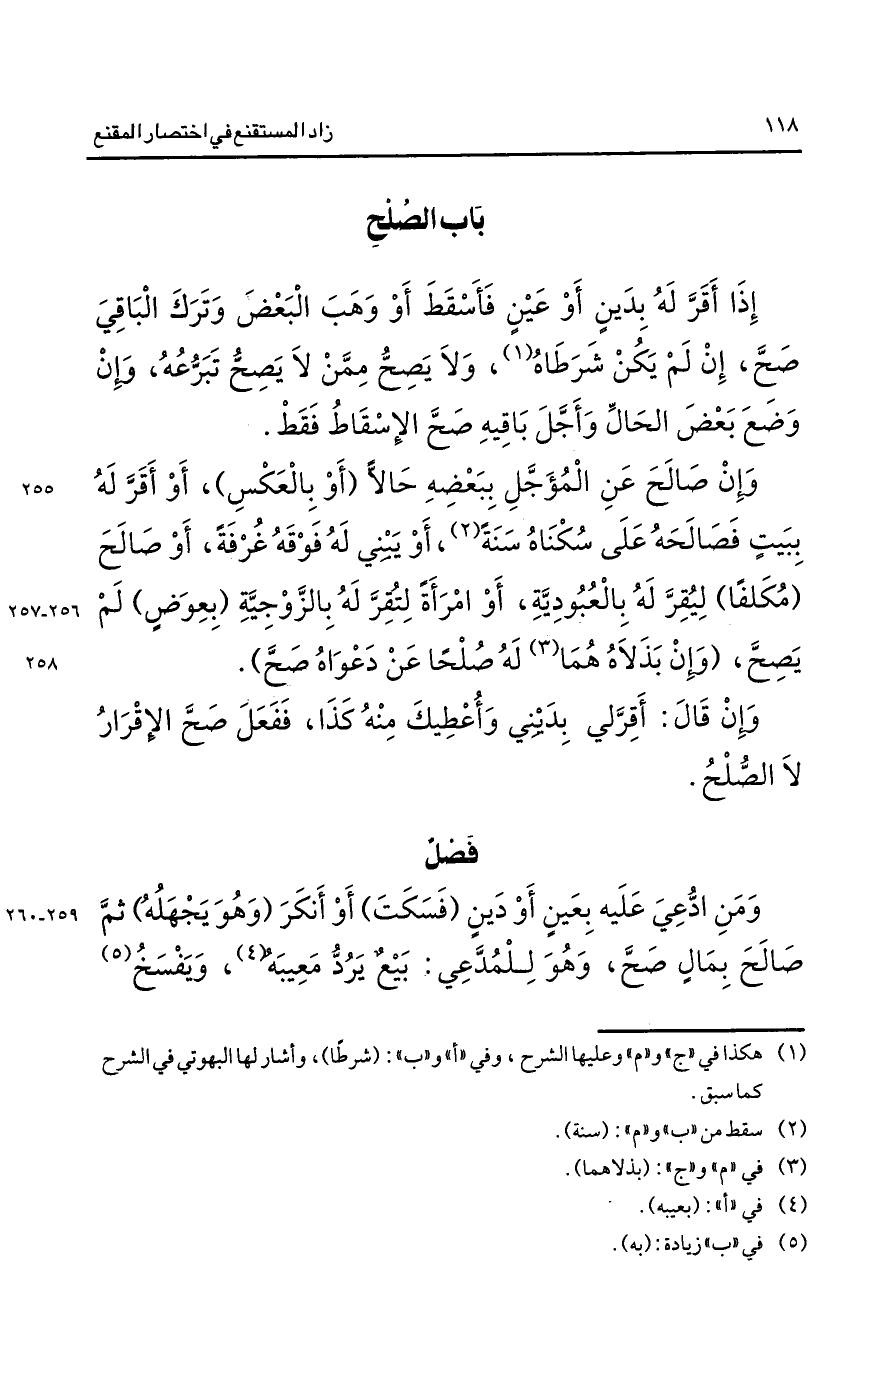 ١١٨
زاد المستقنع في اختصار المقنع
بَاب الصُلْحِ
إِذَا أَقَرَّ لَهُ بِدَينٍ أَوْ عَيْنٍ فَأَسْقَطَ أَوْ وَهَبَ الْبَعْضَ وَتَرَكَ الْبَاقِيَ
صَحَّ، إِنْ لَمْ يَكُنْ شَرَطَاهُ(١)، وَلاَ يَصِحُّ مِمَّنْ لاَ يَصِحُّ تَبَرُّعُهُ، وَإِنْ
وَضَعَ بَعْضَ الحَالِّ وَأَجَّلَ بَاقِيهِ صَحَّ الإِسْقَاطُ فَقَطْ.
وَإِنْ صَالَحَ عَنِ الْمُؤَجَّلِ بِبَعْضِهِ حَالاًّ (أَوْ بِالْعَكْسِ)، أَوْ أَقَرَّ لَهُ ٢٥٥
بِبَيتٍ فَصَالَحَهُ عَلَى سُكْنَاهُ سَنَةً(٢)، أَوْ يَبْنِي لَهُ فَوْقَهُ غُرْفَةً، أَوْ صَالَحَ
(مُكَلفًا) لِيُقِرَّ لَهُ بِالْعُبُودِيَّةِ، أَوْ امْرَأَةً لِتُقِرَّ لَهُ بِالزَّوْجِيَّةِ (بِعِوَضٍ) لَمْ ٢٥٦-٢٥٧
يَصِحَّ، (وَإِنْ بَذَلاَهُ هُمَا(٣) لَهُ صُلْحًا عَنْ دَعْوَاهُ صَحَّ). ٢٥٨
وَإِنْ قَالَ: أَقِرَّلي بِدَيْنِي وَأُعْطِيكَ مِنْهُ كَذَا، فَفَعَلَ صَحَّ الإِقْرَارُ
لاَ الصُّلْحُ.
فَصْلٌ
وَمَنِ ادُّعِيَ عَلَيه بِعَينٍ أَوْ دَينٍ (فَسَكَتَ) أَوْ أَنكَرَ (وَهُوَ يَجْهَلُهُ) ثمَّ ٢٥٩-٢٦٠
صَالَحَ بِمَالٍ صَحَّ، وَهُوَ لِلْمُدَّعِي: بَيْعٌ يَرُدُّ مَعِيبَهُ(٤)، وَيَفْسَخُ(٥)
(١) هكذا في «ج» و«م» وعليها الشرح، وفي «أ» و«ب»: (شرطًا)، وأشار لها البهوتي في الشرح
كما سبق.
(٢) سقط من «ب» و«م»: (سنة).
(٣) في «م» و«ج»: (بذلاهما).
(٤) في «أ»: (بعيبه).
(٥) في «ب» زيادة: (به).